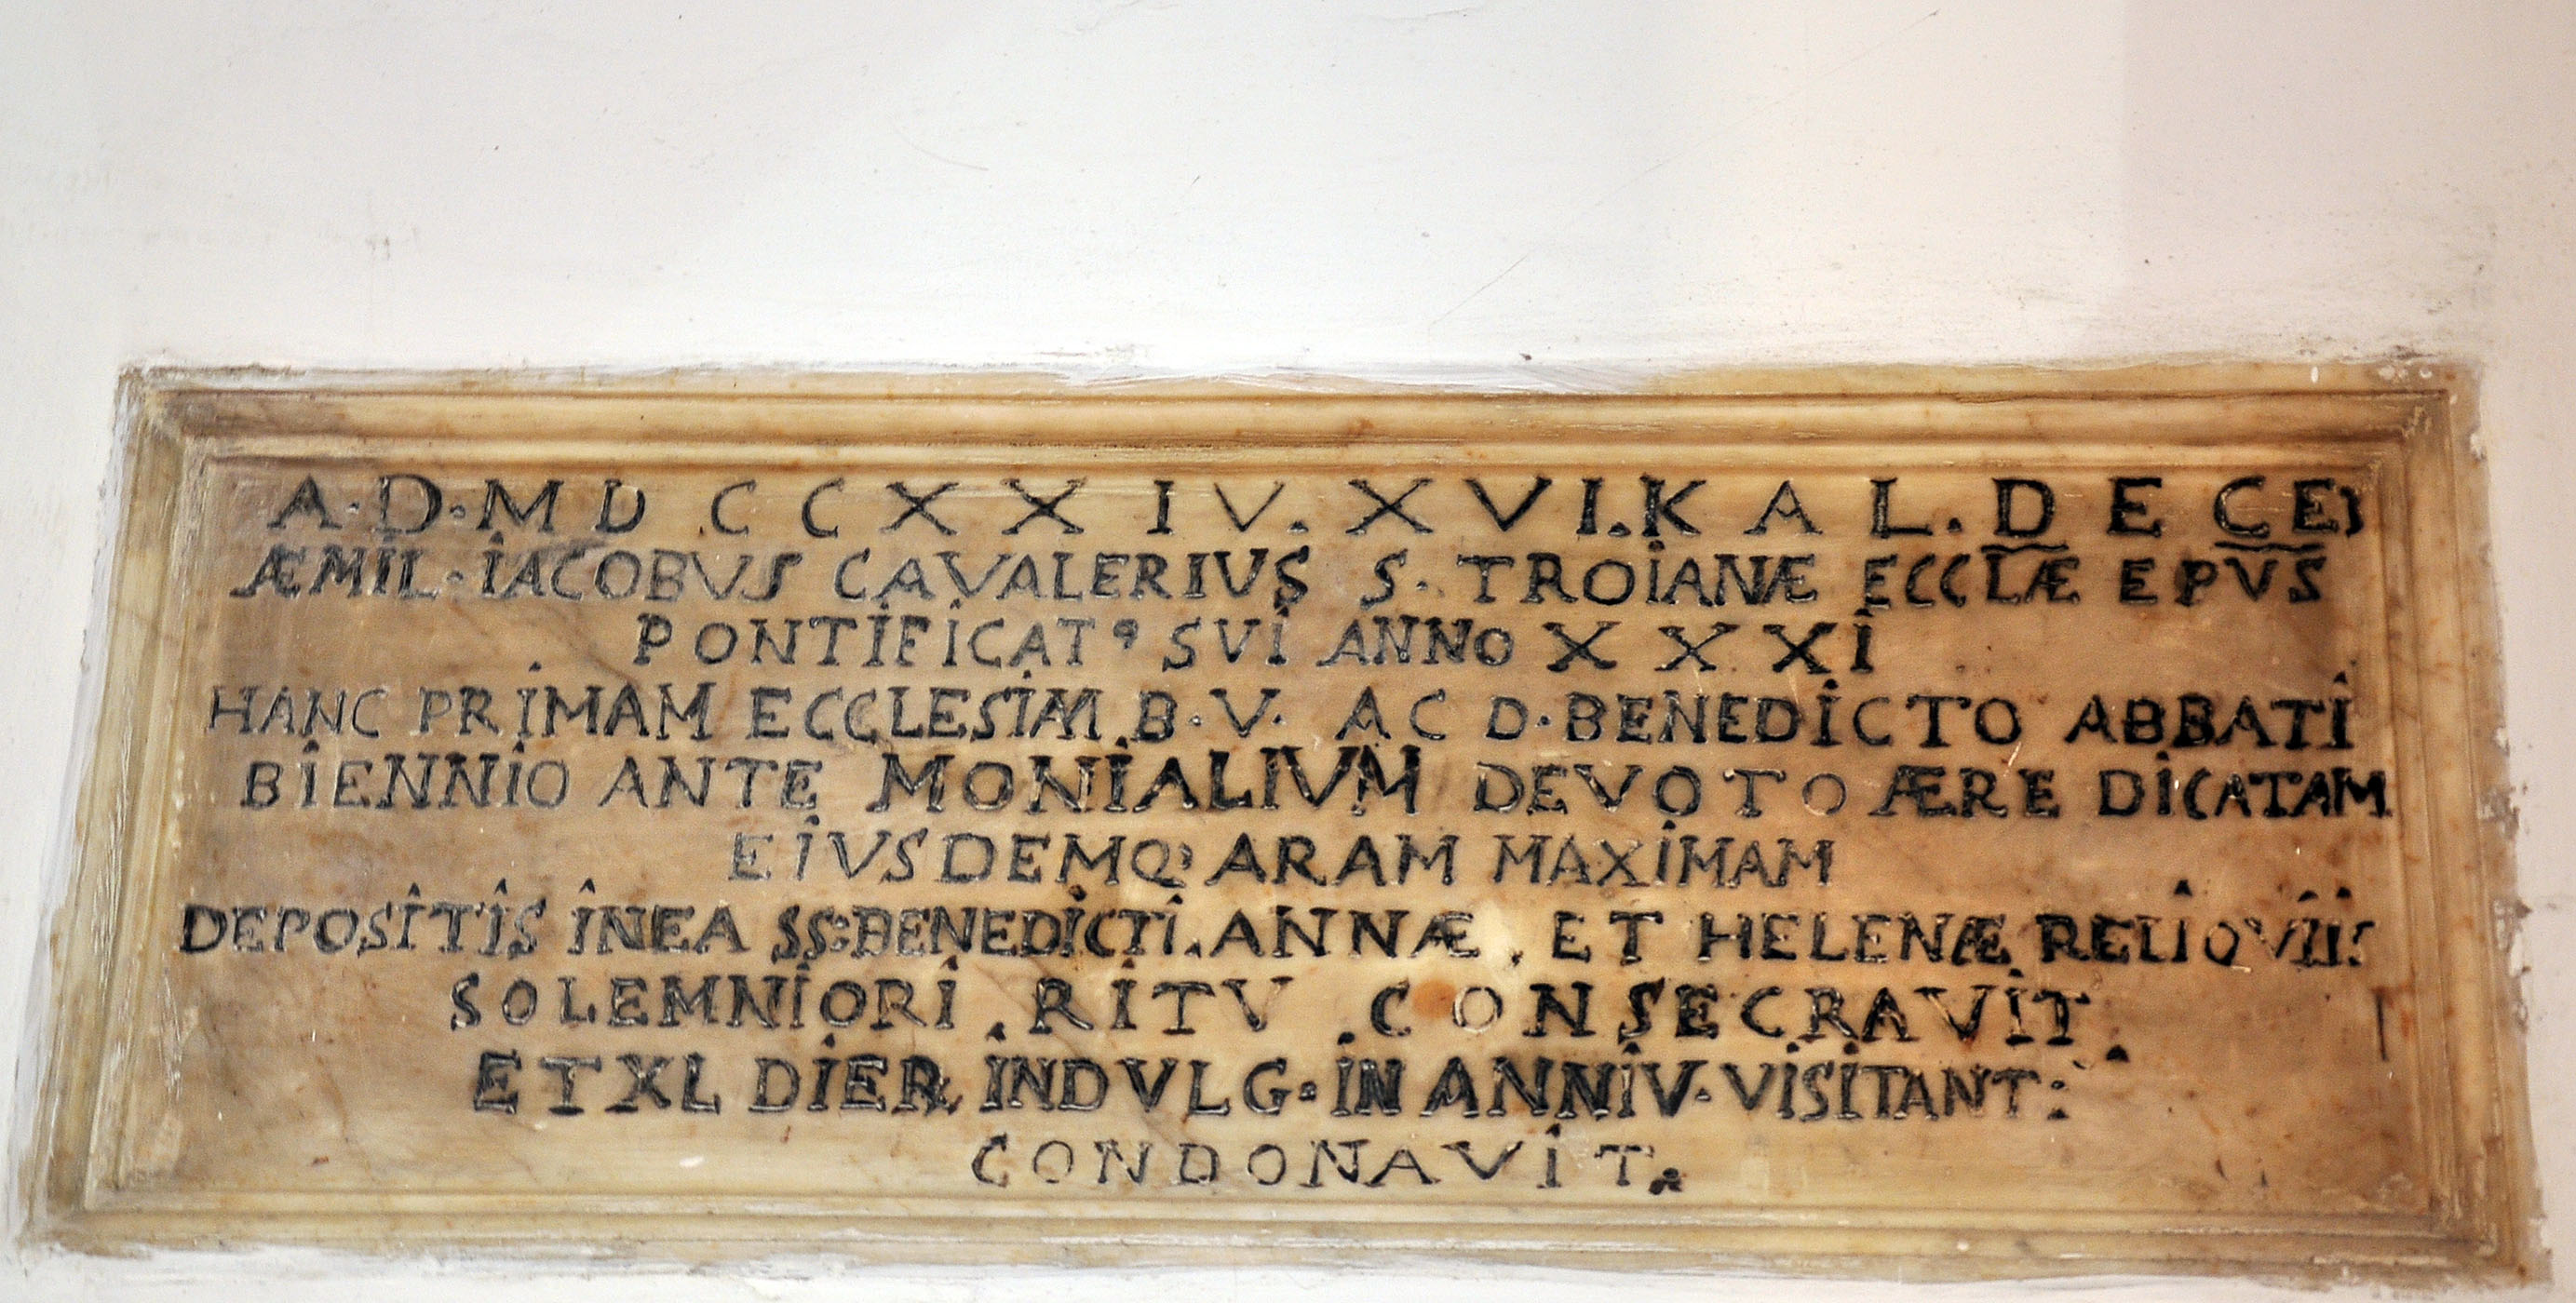 A·D·MDCCXXIV. XVI.KAL.DECE)
ÆMIL·IACOBUS CAVALERIUS S·TROIANÆ ECCLÆ EPVS
PONTIFICATꝰ SVI ANNO XXXI
HANC PRIMAM ECCLESIM B·V· AC D·BENEDICTO ABBATI
BIENNIO ANTE MONIALIVM DEVOTO ÆRE DICATAM
EIVSDEMQ) ARAM MAXIMAM
DEPOSITIS INEA SS:BENEDICTI.ANNÆ, ET HELENÆ RELIQVIIS
SOLEMNIORI.RITV.CONSECRAVIT
ET XL DIER INDVLG·IN ANNIV·VISITANT:
CONDONAVIT.